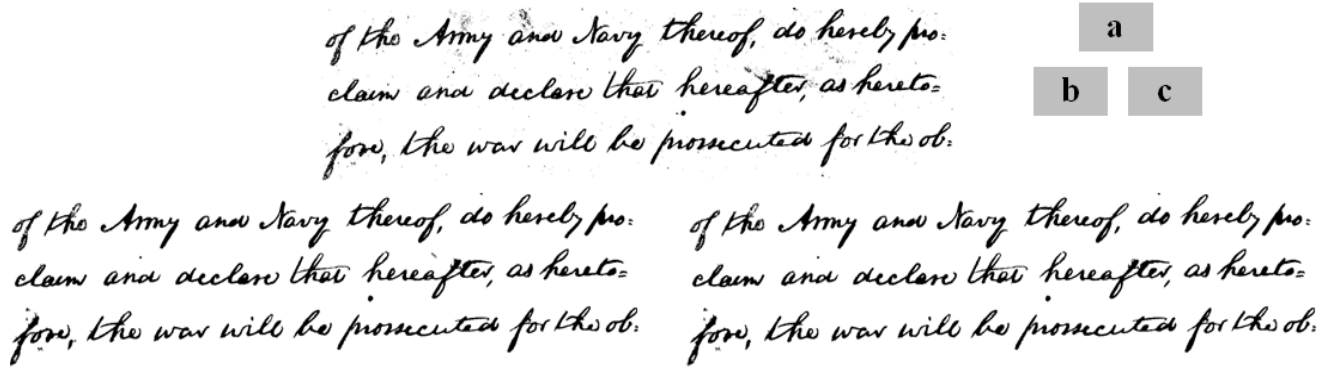 of the Army and Navy thereof, do hereby pro=
claim and declare that hereafter, as hereto=
fore, the war will be prossecuted for the ob=
a
b c
of the Army and Navy thereof, do hereby pro=
claim and declare that hereafter, as hereto=
fore, the war will be prossecuted for the ob=
of the Army and Navy thereof, do hereby pro=
claim and declare that hereafter, as hereto=
fore, the war will be prossecuted for the ob=